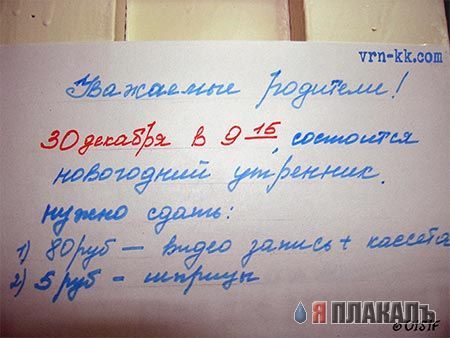 vrn-kk.com
Уважаемые родители!
30 декабря в 9 15 состоится
новогодний утренник.
нужно сдать:
1) 80 руб — видео запись + кассета
2) 5 руб - шприцы
Я ПЛАКАЛЪ